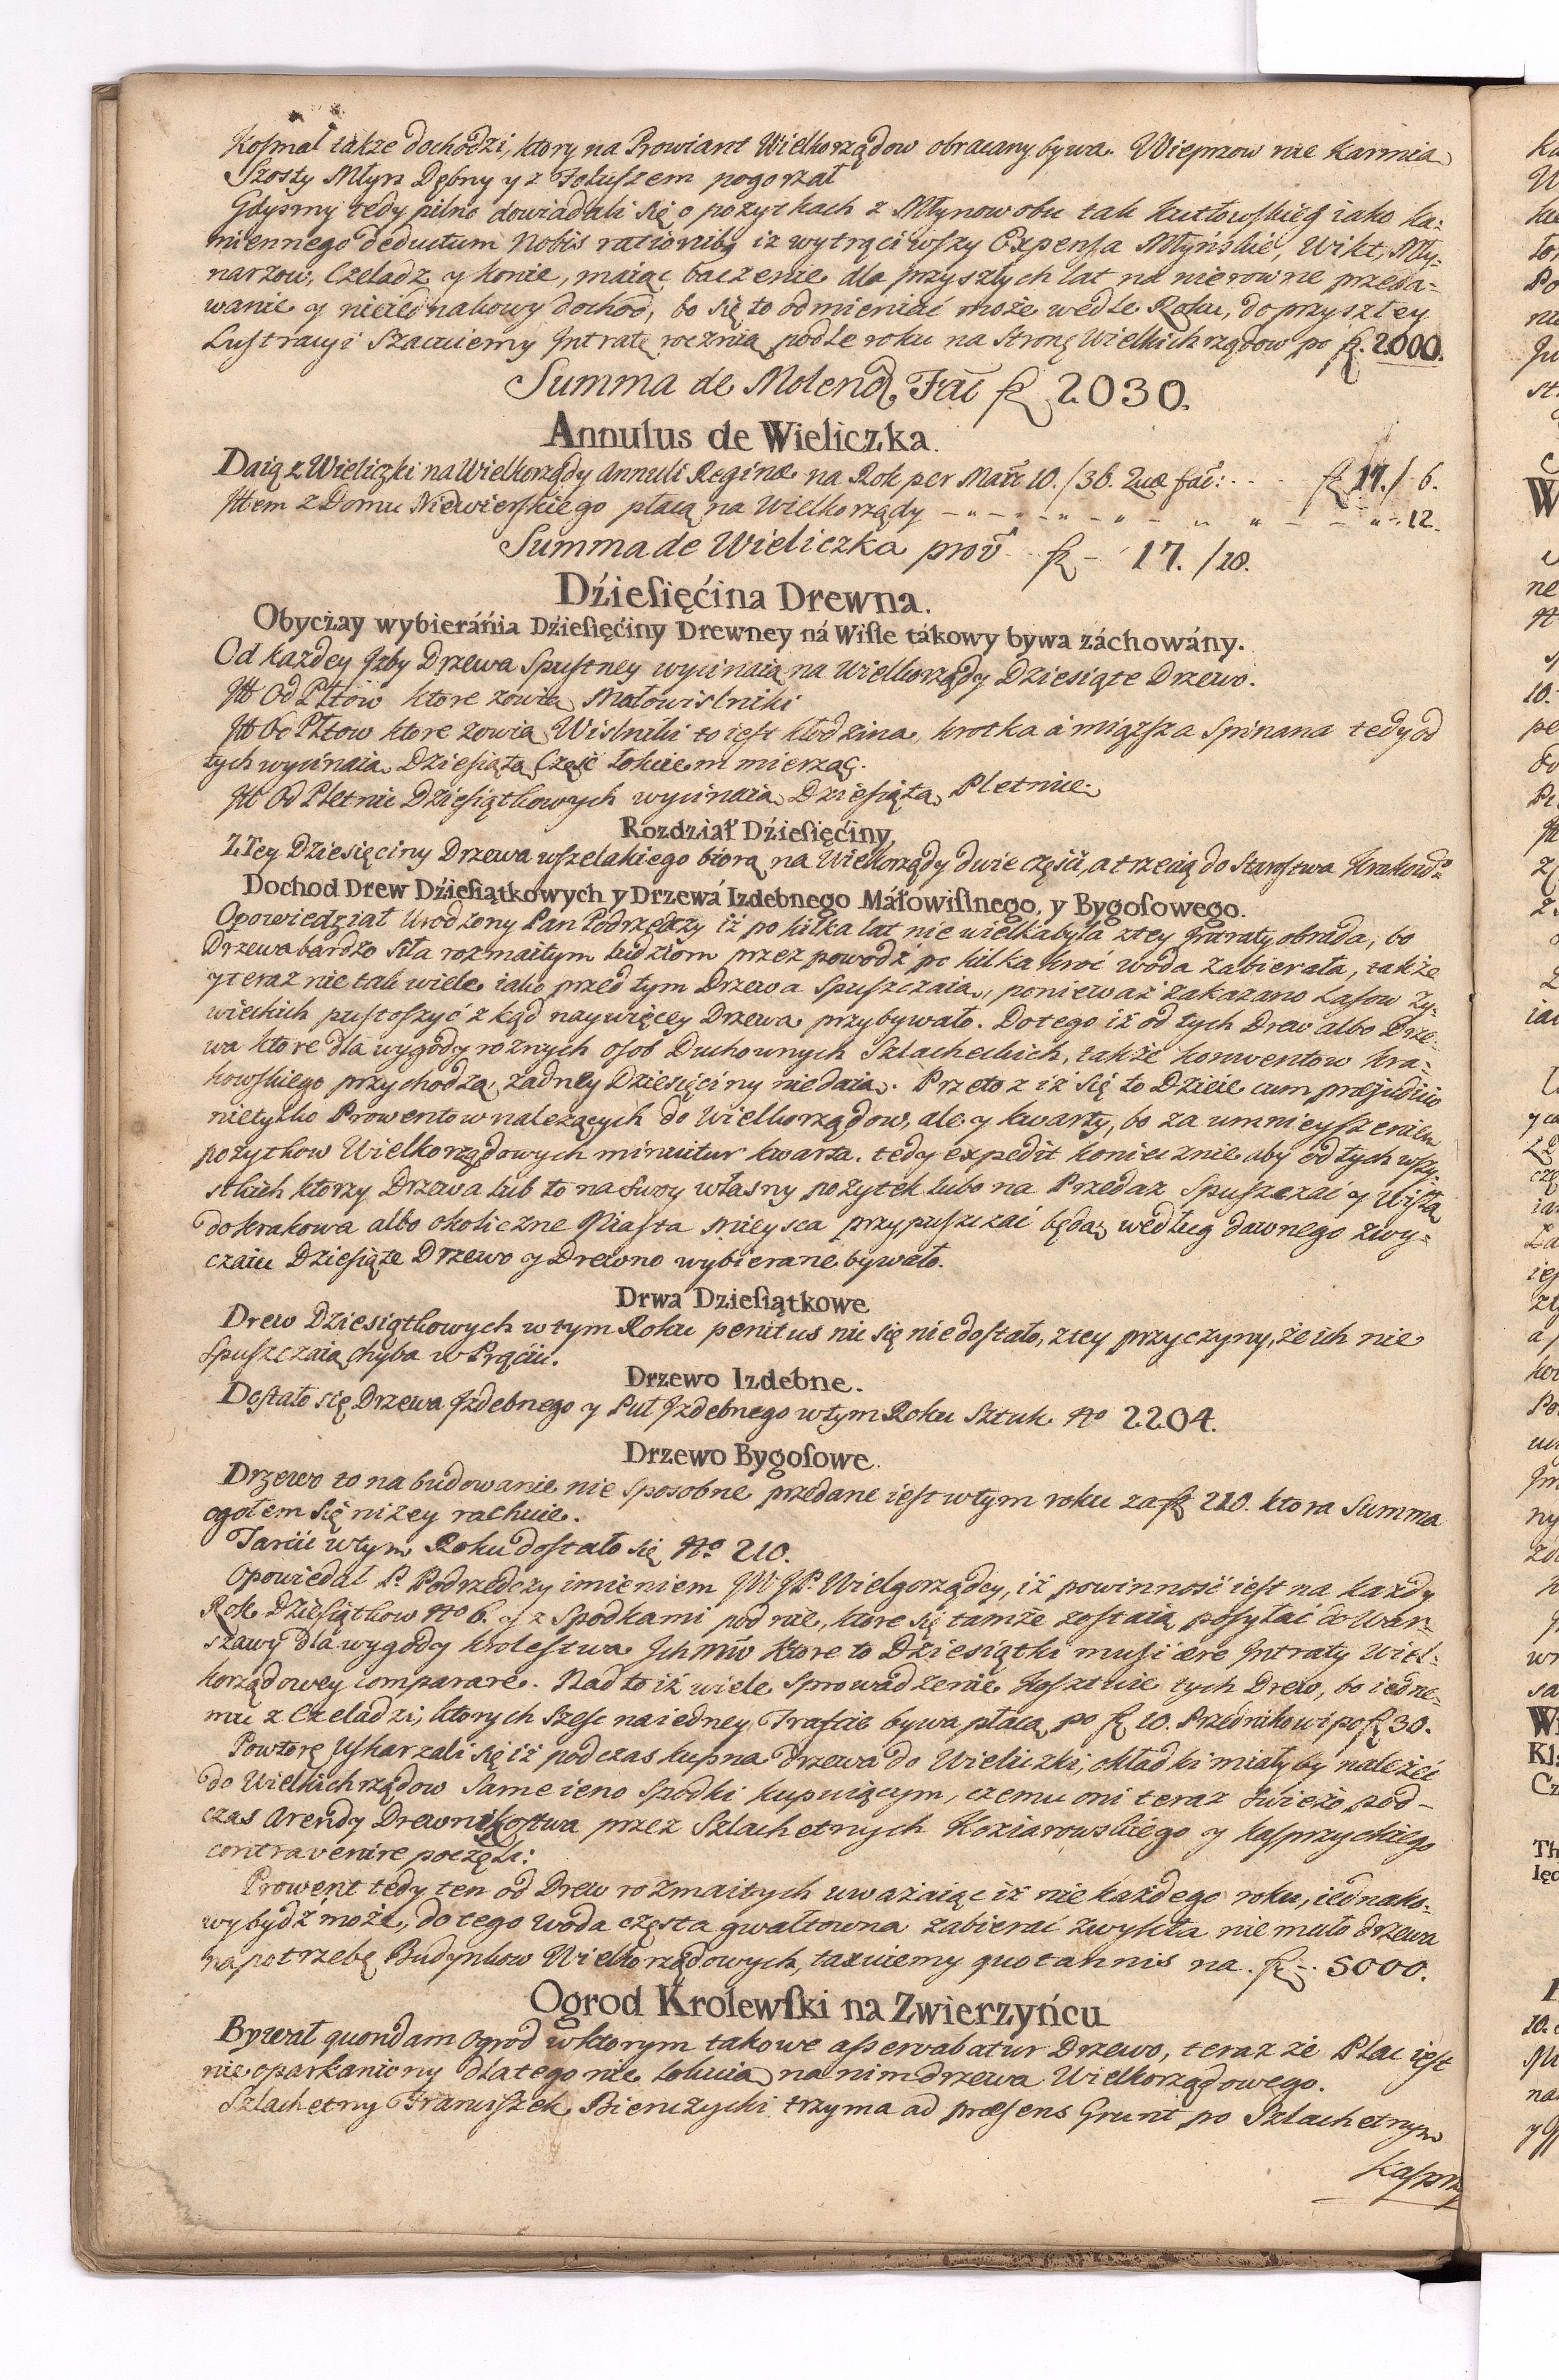 Kosmal także dochodzi, ktory na Prowiant Wielkorządow obracany bywa. Wieprzow nie karmią
Szosty Młyn Dębny y z Foluszem pogorzał
Gdyśmy tedy pilno dowiadali się o pożytkach z Młynow obu tak Kutłowskieg iako Ka=
miennego deductum Nobis rationibꝫ iż wytrąciwszy Expensa Młyńskie, Wikt, Mły=
narzow, Czeladz y Konie, maiąc baczenie dla przyszłych lat na nierowne przeda=
wanie y nieiednakowy dochod, bo się to odmieniać może wedle Roku, do przyszłey
Lustracyi Szacuiemy Intratę roczną podle roku na Stronę Wielkich rządow po fl. 2000.
Summa de Molend. Fac fl 2030.
Annulus de Wieliczka.
Daią z Wieliczki na Wielkorządy Annuli Reginæ na Rok per Marc 10./36. Quæ fac: . . . fl 17./ 6.
Item z Domu Niewierskiego płacą na Wielkorządy - „ - „ - „ - „ - „ - - „ 12.
Summa de Wieliczka prov fl - 17. /18.
Dźiesięćina Drewna.
Obyczay wybieránia Dźiesięćiny Drewney ná Wisle tákowy bywa záchowány.
Od każdey Izby Drzewa Spustney wycinaią na Wielkorządy Dziesiąte Drzewo.
It Od Płtow ktore zowią Małowislniki
It Od Płtow ktore zowią Wislniki to iest kłodzina, krotka a miąższa Spinana tedy od
tych wycinaią Dziesiątą Część łokciem mierząc.
It Od Pletnic Dziesiątkowych wycinaią Dziesiątą Pletnicę.
Rozdział Dźiesięćiny.
Z Tey Dziesięciny Drzewa wszelakiego biorą na Wielkorządy dwie części, a trzecią do Starostwa Krakowo
Dochod Drew Dźiesiątkowych y Drzewá Izdebnego Máłowislnego, y Bygosowego.
Opowiedział Urodzony Pan Podrzędczy iż po kilka lat nie wielka była z tey Intraty obrada, bo
Drzewa bardzo siła rozmaitym ludziom przez powodź po kilka kroć woda zabierała, także
y teraz nie tak wiele iako przed tym Drzewa Spuszczaią, ponieważ zakazano Lasow Ży=
wieckich pustoszyć z kąd naywięcey Drzewa przybywało. Do tego iż od tych Drew albo Drze=
wa ktore dla wygody roznych osob Duchownych Szlacheckich, także konwentow Kra=
kowskiego przychodzą, żadney Dziesięciny niedaią. Przeto z iż się to Dzieie cum præjudicio
nietylko Prowentow należących do Wielkorządow, ale y kwarty, bo za umnieyszeniem
pożytkow Wielkorządowych minuitur kwarta. tedy expedit koniecznie aby od tych wszy=
stkich ktorzy Drzewa lub to na Swoy własny pożytek lubo na Przedaż Spuszczać y Wisłą
do Krakowa albo okoliczne Miasta mieysca przypuszczać będą, według dawnego zwy=
czaiu Dziesiąte Drzewo y Drewno wybierane bywało.
Drwa Dziesiątkowe
Drew Dziesiątkowych w tym Roku penitus nic się nie dostało, z tey przyczyny, że ich nie
Spuszczaią chyba w Prąciu.
Drzewo Izdebne.
Dostało się Drzewa Izdebnego y Puł Izdebnego w tym Roku Sztuk No 2204.
Drzewo Bygosowe.
Drzewo to na budowanie nie sposobne przedane iest w tym roku za fl 210. ktora Summa
ogołem się niżey rachuie.
Tarcic w tym Roku dostało się No. 210.
Opowiedał P. Podrzędczy imieniem JW JP. Wielgorządcy, iż powinność iest na każdy
Rok Dziesiątkow No 6. y z Spodkami pod nie, ktore się tamże zostaią, posyłać do War=
szawy dla wygody Krolestwa Ichmw ktore to Dziesiątki musi ære Intraty Wiel=
korządowey comparare. Nad to iż wiele Sprowadzenie kosztuie tych Drew, bo iedne=
mu z Czeladzi, ktorych Szesc na iedney Trafcie bywa płacą po fl 20. Przednikowi po fl 30.
Powtore Uskarzali się iż podczas kupna Drzewa do Wieliczki, okładki miały by należeć
do Wielkich rządow Same ieno Spodki kupuiącym, czemu oni teraz świeżo pod-
czas Arendy Drewnikostwa przez Szlachetnych Koziarowskiego y Kasprzyckiego
contravenire poczęli:
Prowent tedy ten od Drew rozmaitych uważaiąc iż nie każdego roku, iednako=
wy bydź może, do tego woda częsta gwałtowna zabierać zwykła nie mało drzewa
na potrzebę Budynkow Wielkorządowych, taxuiemy quotannis na. fl -. 5000.
Ogrod Krolewski na Zwierzyńcu
Bywał quondam Ogrod w ktorym takowe asservabatur Drzewo, teraz że Plac iest
nie oparkaniony dlatego nie lokuią na nim drzewa Wielkorządowego.
Szlachetny Franciszek Bienczycki trzyma ad præsens Grunt po Szlachetnym
Kasprzy